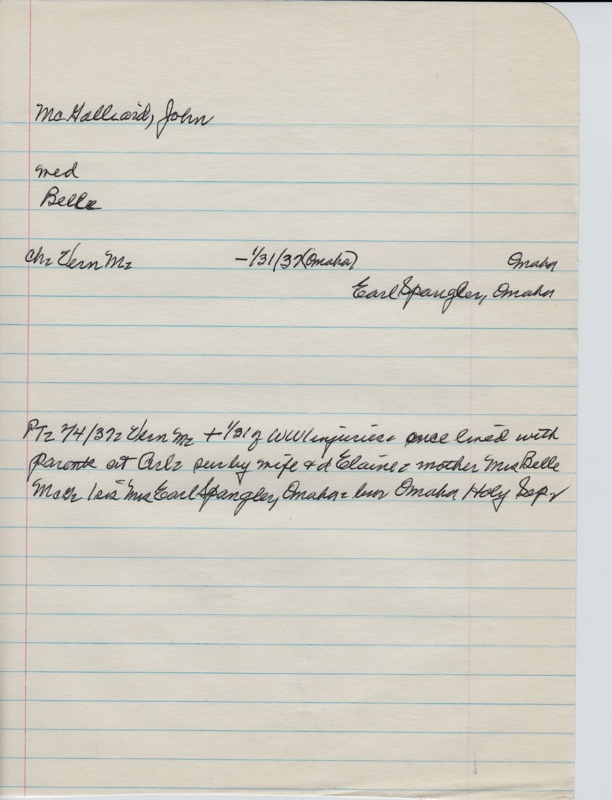 McGalliard, John
med
Belle
ch: Vern Mc -1/31/37 (Omaha) Omaha
Earl Spangler, Omaha
PT: 2/4/37: Vern Mc + 1/31 of WWI injuries. once lived with
parents at Arl: sur by wife + d Elaine: mother Mrs Belle
McG: 1 sis Mrs Earl Spangler, Omaha: bur Omaha Holy Sep